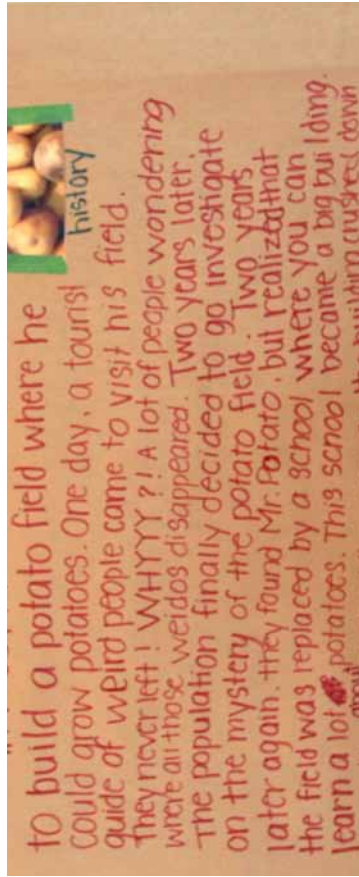 history
to build a potato field where he
could grow potatoes. One day, a tourist
guide of weird people came to visit his field.
They never left! WHYYY?! A lot of people wondering
where all those weidos disappeared. Two years later.
The population finally decided to go investigate
on the mystery of the potato field. Two years
later again. they found Mr. Potato, but realized that
the field was replaced by a school where you can
learn a lot potatoes. This school became a big building.